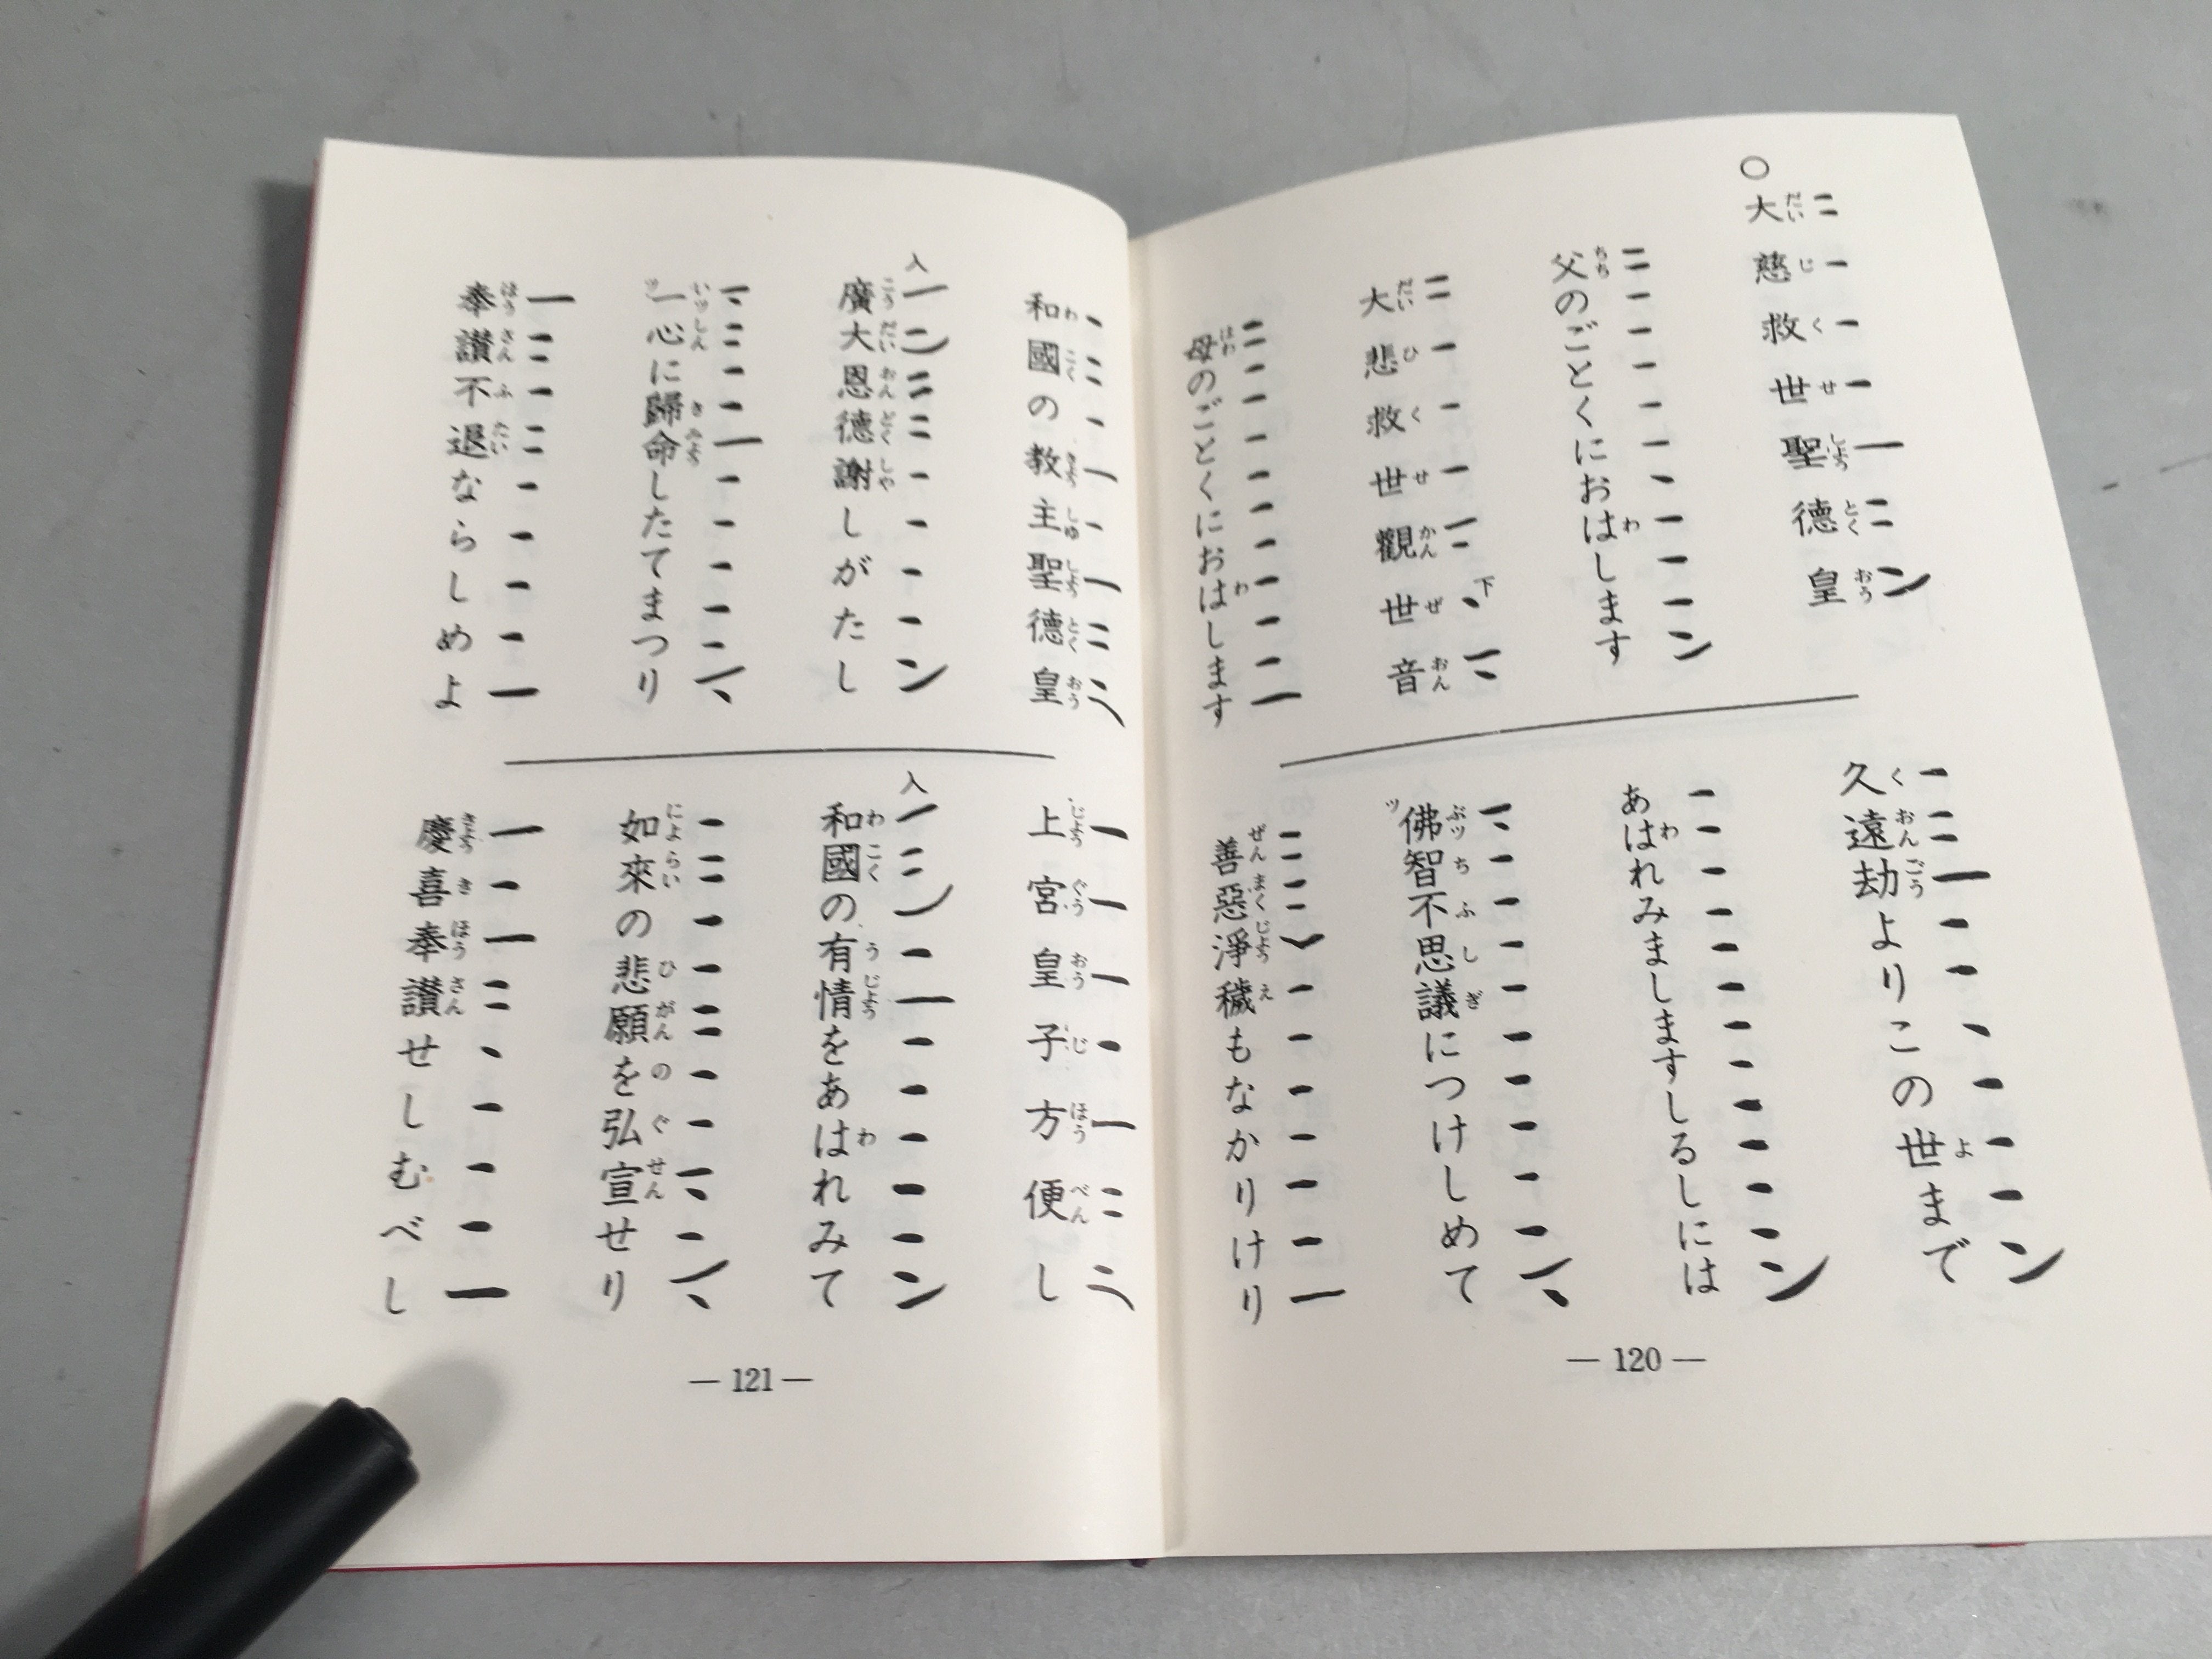 ○大慈救世聖德皇
父のごとくにおはします
大悲救世觀世音
母のごとくにおはします
久遠劫よりこの世まで
あはれみましますしるしには
佛智不思議につけしめて
善惡淨穢もなかりけり
— 120 —
和國の教主聖德皇
廣大恩德謝しがたし
一心に歸命したてまつり
奉讃不退ならしめよ
上宮皇子方便し
和國の有情をあはれみて
如來の悲願を弘宣せり
慶喜奉讃せしむべし
— 121 —